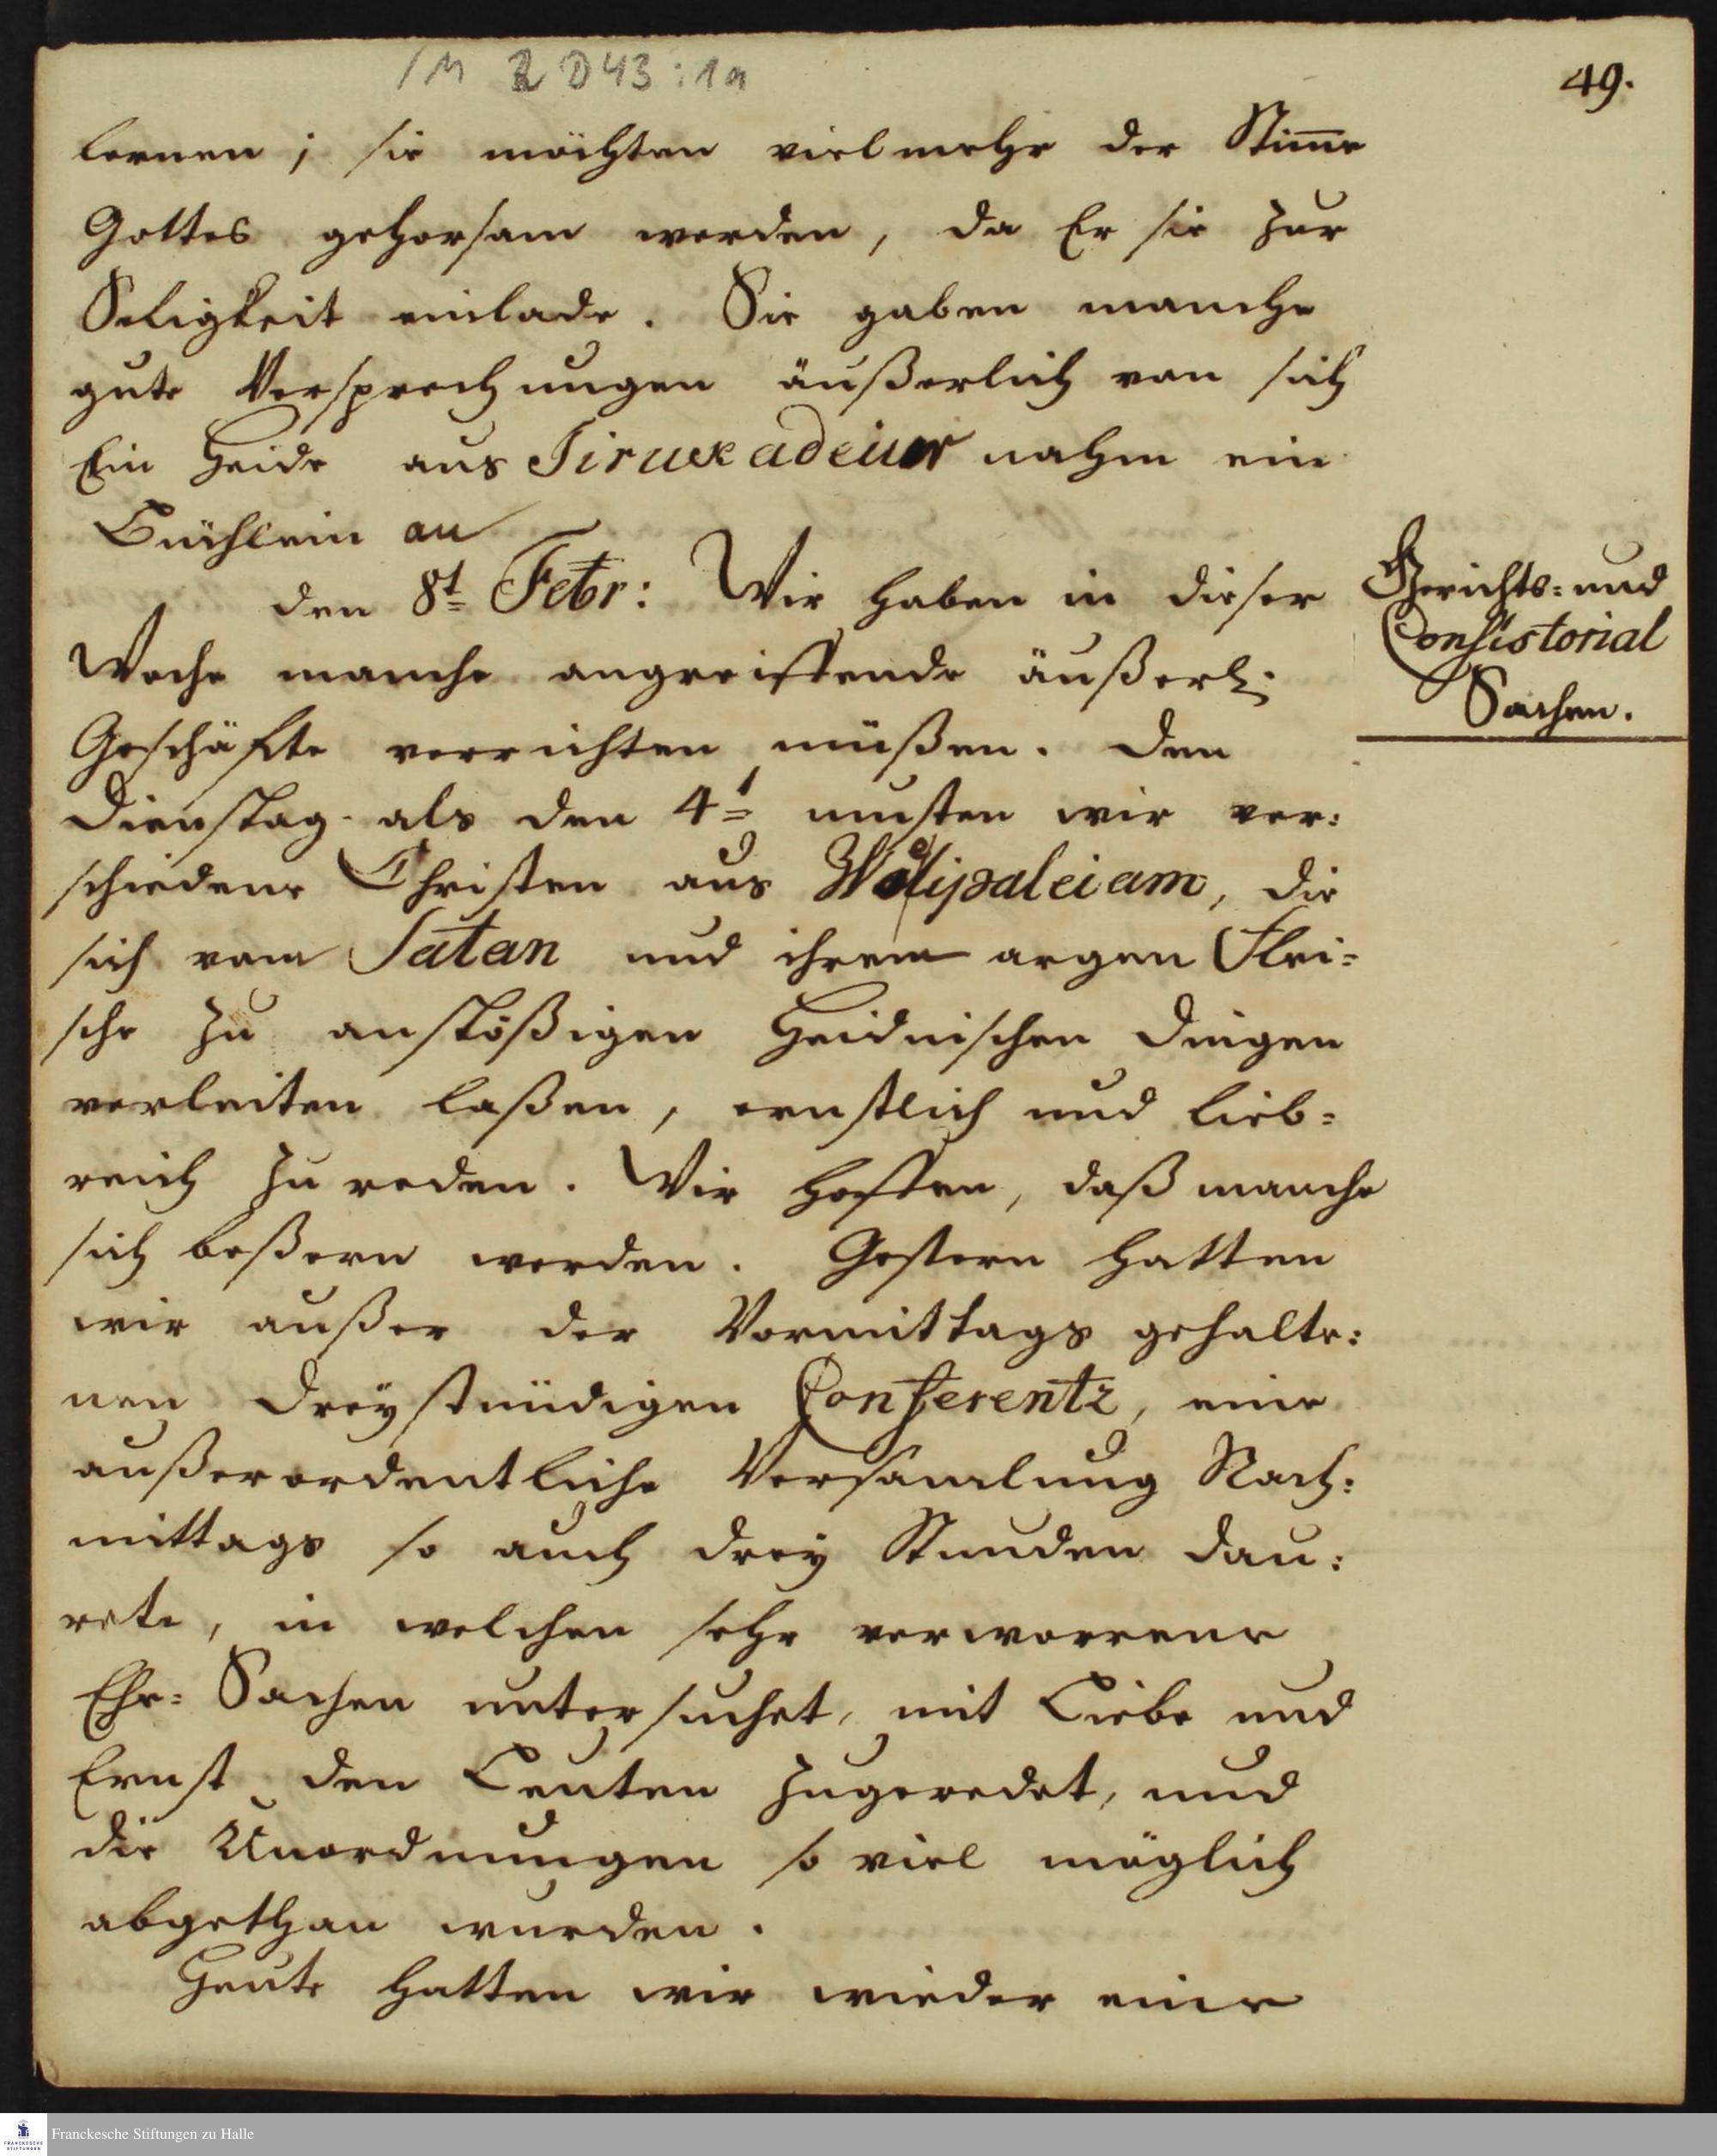 1M 2 D43:1a
49.
lernen; sie möchten vielmehr der Stim̅e
Gottes gehorsam werden, da Er sie zur
Seligkeit einlade. Sie gaben manche
gute Versprechungen äußerlich von sich
Ein Heide aus Tirukadeiur nahm ein
Büchlein an
den 8t Febr: Wir haben in dieser
Woche manche angreiffende äußerl:
Geschäfte verrichten müßen. Den
Dienstag als den 4t musten wir ver:
schiedene Christen aus Welipaleiam, die
sich vom Satan und ihrem argen Flei=
sche zu anstößigen Heidnischen Dingen
verleiten laßen, ernstlich und lieb=
reich zu reden. Wir hoffen, daß manche
sich beßern werden. Gestern hatten
wir außer der Vormittags gehalte:
nen dreystündigen Conferentz, eine
außerordentliche Versamlung Nach:
mittags so auch drey Stunden dau:
rete, in welchen sehr verworrene
Ehe=Sachen untersuchet, mit Liebe und
Ernst den Leuten zugeredet, und
die Unordnungen so viel möglich
abgethan wurden.
Heute hatten wir wieder eine
Gerichts= und
Consistorial
Sachen.
FRANCKESCHE
STIFTUNGEN
Franckesche Stiftungen zu Halle